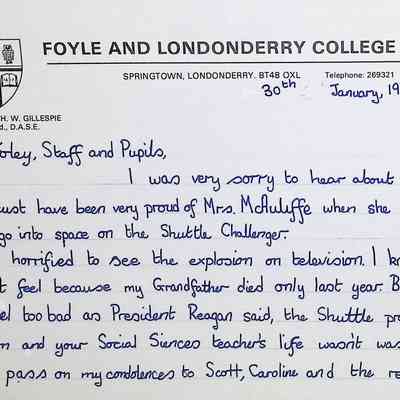 FOYLE AND LONDONDERRY COLLEGE
SPRINGTOWN, LONDONDERRY. BT48 OXL Telephone: 269321
30th January, 19
H. W. GILLESPIE
d., D.A.S.E.
orley, Staff and Pupils,
I was very sorry to hear about
ust have been very proud of Mrs. McAuliffe when she
go into space on the Shuttle Challenger.
horrified to see the explosion on television. I k
t feel because my Grandfather died only last year. B
el too bad as President Reagan said, the Shuttle pro
m and your Social Siences teacher's life wasn't was
pass on my condolences to Scott, Caroline and the re